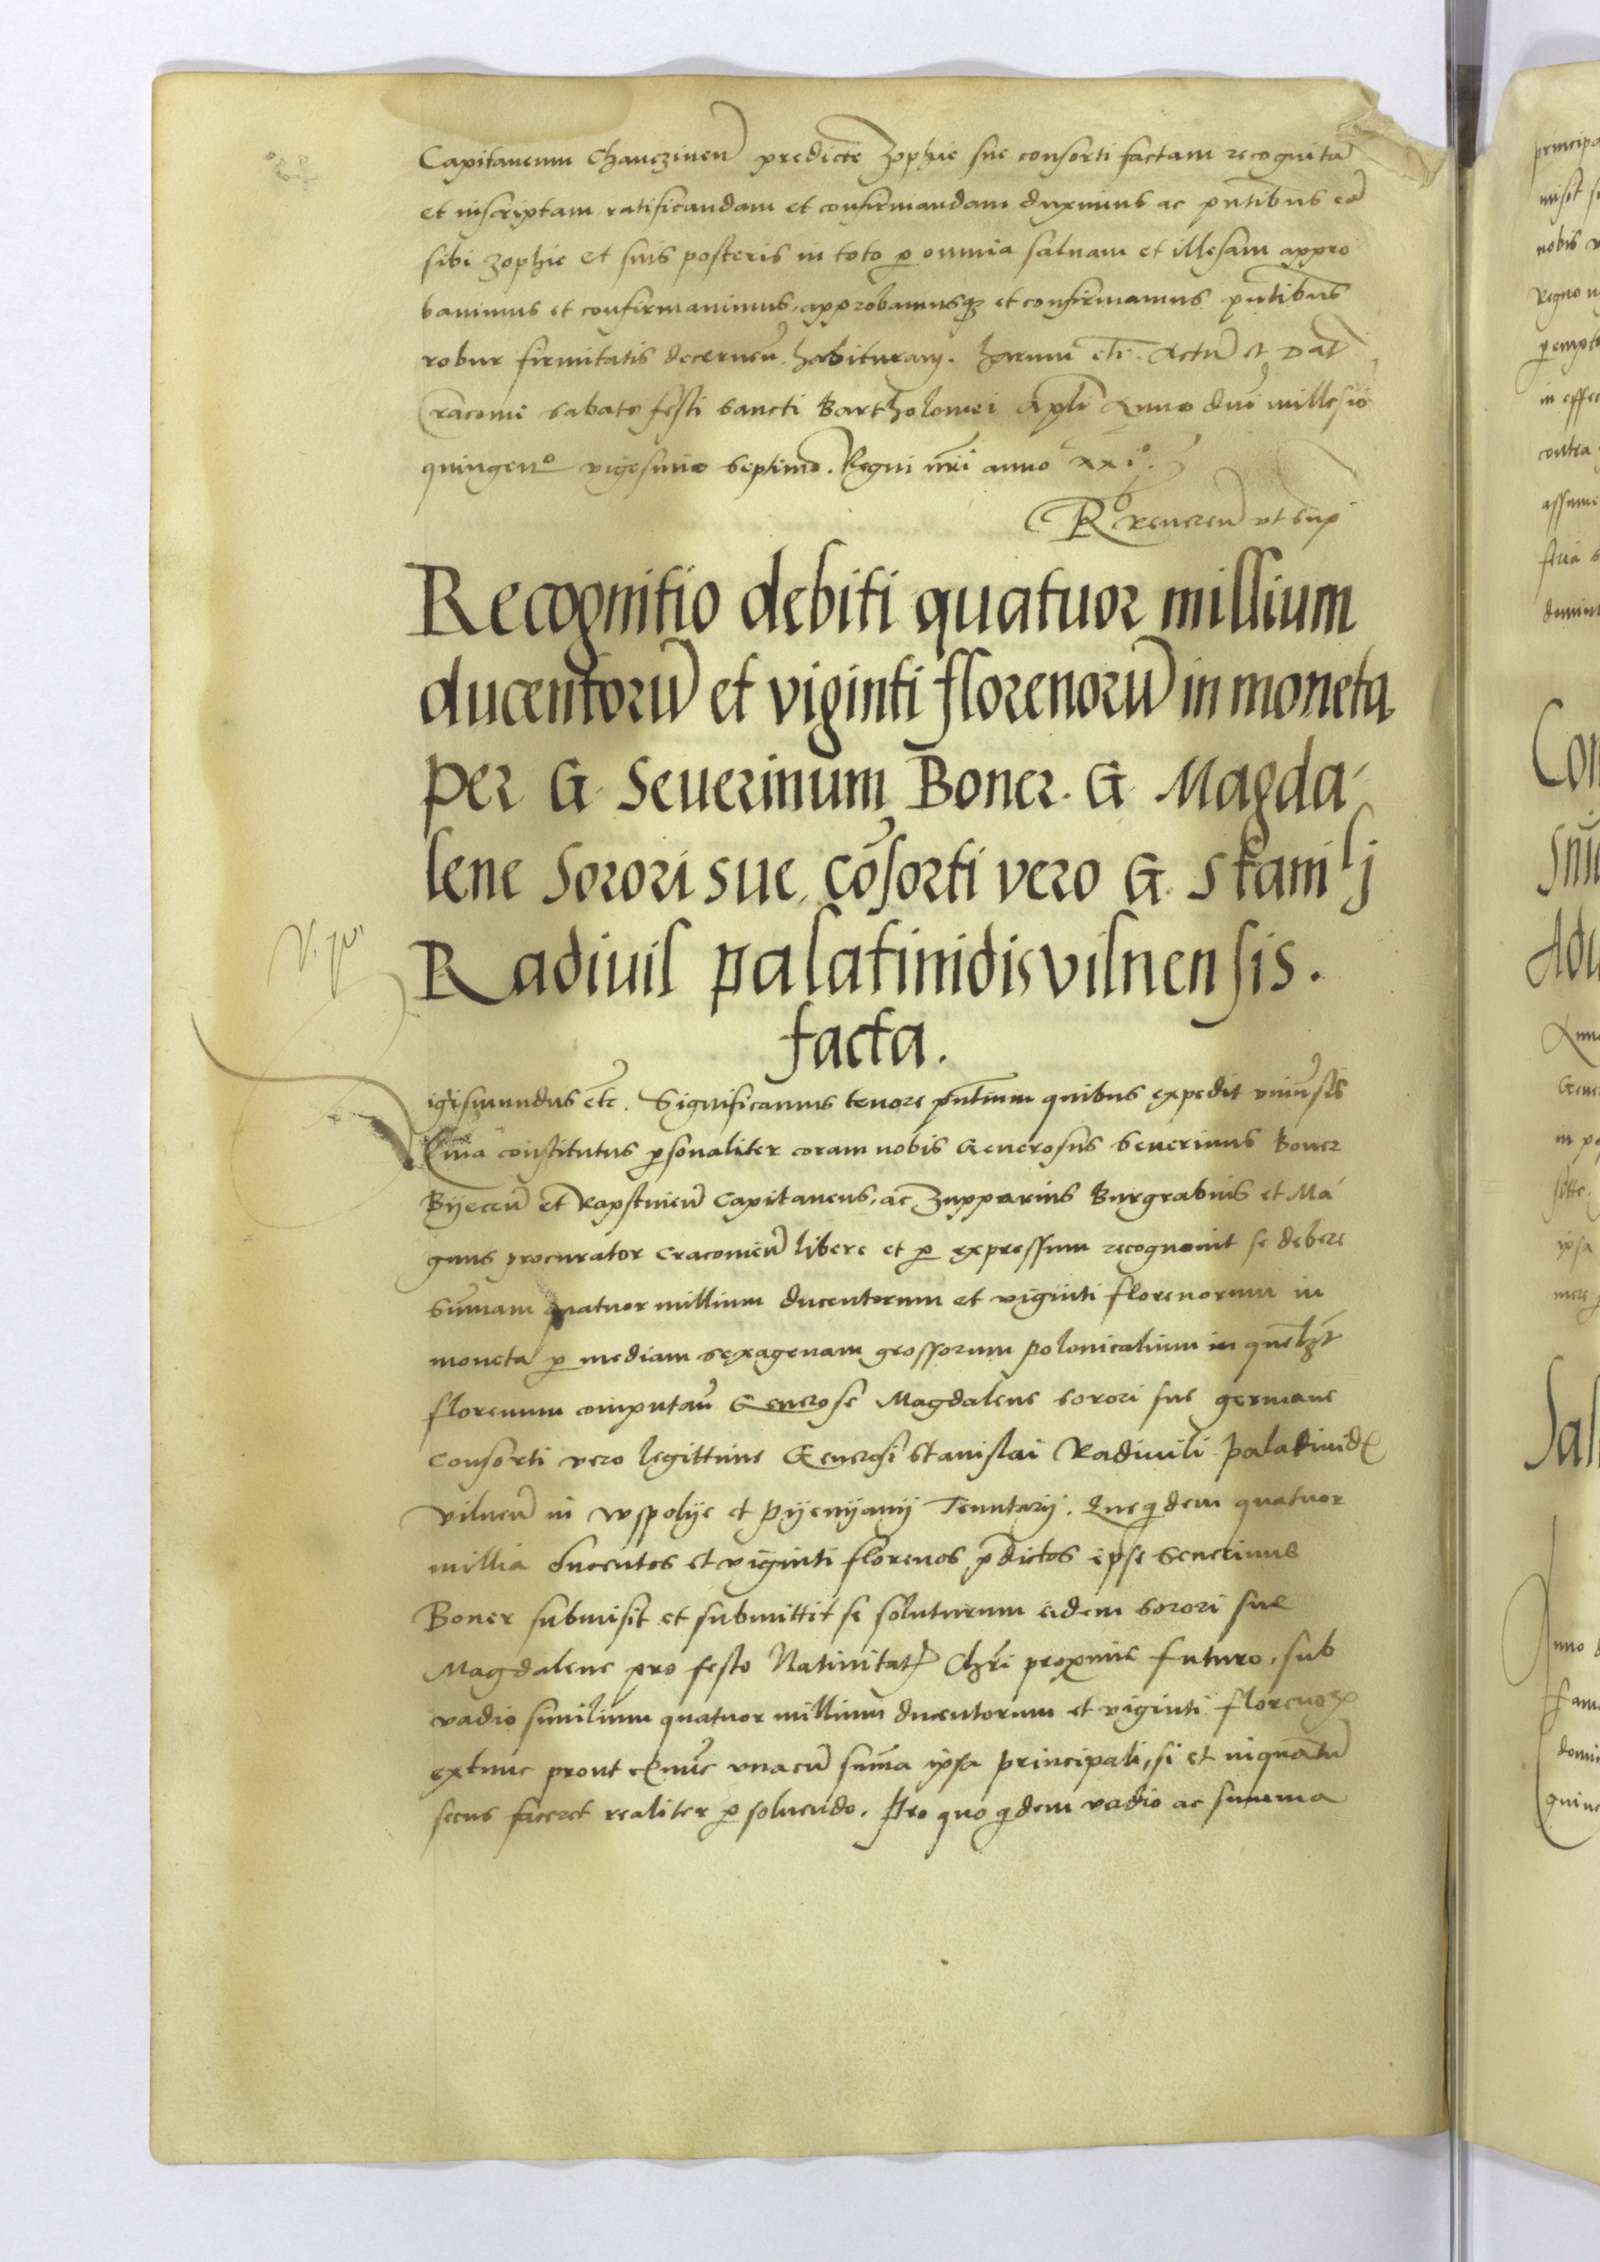 Capitaneum Chanczinen̄ predicte Zophie sue consorti factam recognitā
et inscriptam ratificandam et confirmandam duximus ac pn̄tibus eā
sibi Zophie et suis posteris in toto p omnia saluam et illesam appro
bauimus et confirmauimus, approbamusq; et confirmamus pn̄tibus
robur firmitatis decernen̄ habituram. harum etc̄. Actū et Dat̄
Cracouie sabato festi sancti Bartholomei Apli Anno dn̄i millesīo
quingen̄o vigesimo septimo. Regni nr̄i anno xxiº.
Rº reueren̄ vt sup̄
Recognitio debiti quatuor millium
ducentorū et viginti florenorū in moneta
per G. Seuerinum Boner. G. Magda-
lene Sorori sue, cōsorti vero G. Stanislj
Radiuil palatinidis vilnensis.
facta.
igismundus etc̄. Significamus tenore pn̄tium quibus expedit vniūsis
Quia constitutus psonaliter coram nobis Generosus Seuerinus Boner
Byecen̄ et Rapstinen̄ Capitaneus, ac Zupparius Burgrabius et Ma
gnus procurator Cracouien̄ libere et p expressum recognouit se debere
Sūmam quatuor millium ducentorum et viginti florenorum in
moneta p mediam sexagenam grossorum polonicalium in quēlzt
florenum computan̄ Generose Magdalene sorori sue germane
Consorti vero legittime Generosi Stanislai Radiuili palatinid
Vilnen̄ in Wspolye et Pyenyany Tenutarij. Que qdem quatuor
millia ducentos et viginti florenos pdictos ipse Seuerinus
Boner submisit et submittit se soluturum eidem sorori sue
Magdalene pro festo Natiuitat Chri proxime futuro, sub
vadio similium quatuor millium ducentorum et viginti floreno
extunc prout exnūc vnacū sum̄a ipsa principali, si et inquantū
secus faceret realiter p soluendo. Pro quo qdem vadio ac summa